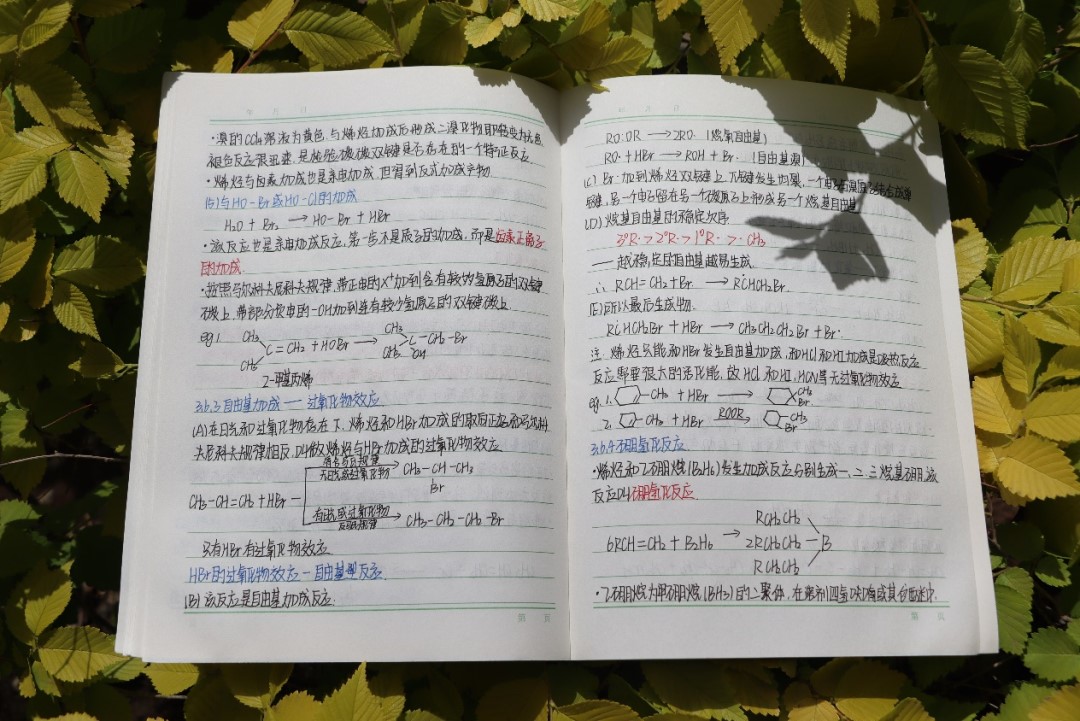 年 月 日
·溴的CCl₄溶液为黄色,与烯烃加成后形成二溴化物即转变为无色
褪色反应很迅速,是检验碳碳双键是否存在的一个特征反应
·烯烃与卤素加成也是亲电加成,但得到反式加成产物
(5)与HO-Br或HO-Cl的加成
H₂O + Br₂ → HO-Br + HBr
·该反应也是亲电加成反应,第一步不是质子的加成,而是卤素正离子
的加成
·按照马尔科夫尼科夫规律,带正电的X⁺加到含有较多氢原子的双键
碳上,带部分负电的-OH加到连有较少氢原子的双键碳上
eg 1.
CH₃ CH₃ C=CH₂ + HOBr → CH₃ CH₃ C-CH₂-Br OH
2-甲基丙烯
3.6.3 自由基加成 — 过氧化物效应
(A)在日光和过氧化物存在下,烯烃和HBr加成的取向正好和马尔科
夫尼科夫规律相反,叫做烯烃与HBr加成的过氧化物效应
符合马氏规律
无光或过氧化物 CH₃-CH-CH₃
Br
CH₃-CH=CH₂ + HBr
有光或过氧化物 CH₃-CH₂-CH₂-Br
反马规律
只有HBr有过氧化物效应
HBr的过氧化物效应-自由基型反应
(B)该反应是自由基加成反应
第 页
年 月 日
RO:OR → 2RO· (烷氧自由基)
RO· + HBr → ROH + Br· (自由基溴)
(C) Br·加到烯烃双键上,π键发生均裂,一个电子与溴原子结合成单
键,另一个电子留在另一个碳原子上形成另一个烷基自由基
(D)烷基自由基的稳定次序
3°R·>2°R·>1°R·>·CH₃
— 越稳定的自由基越易生成
∴ RCH=CH₂ + Br· → RĊHCH₂Br
(E)所以最后生成物
RĊHCH₂Br + HBr → CH₃CH₂CH₂Br + Br·
注:烯烃只能和HBr发生自由基加成,和HCl和HI加成是吸热反应
反应需要很大的活化能,故HCl和HI,HCN等无过氧化物效应
eg. 1. -CH₃ + HBr → CH₃ Br
2. -CH₃ + HBr ROOR → CH₃ Br
3.6.4 硼氢化反应
·烯烃和乙硼烷(B₂H₆)发生加成反应分别生成一、二、三烷基硼,该
反应叫硼氢化反应
RCH₂CH₂
6RCH=CH₂ + B₂H₆ → 2RCH₂CH₂-B
RCH₂CH₂
·乙硼烷为甲硼烷(BH₃)的二聚体,在溶剂四氢呋喃或其他醚中
第 页